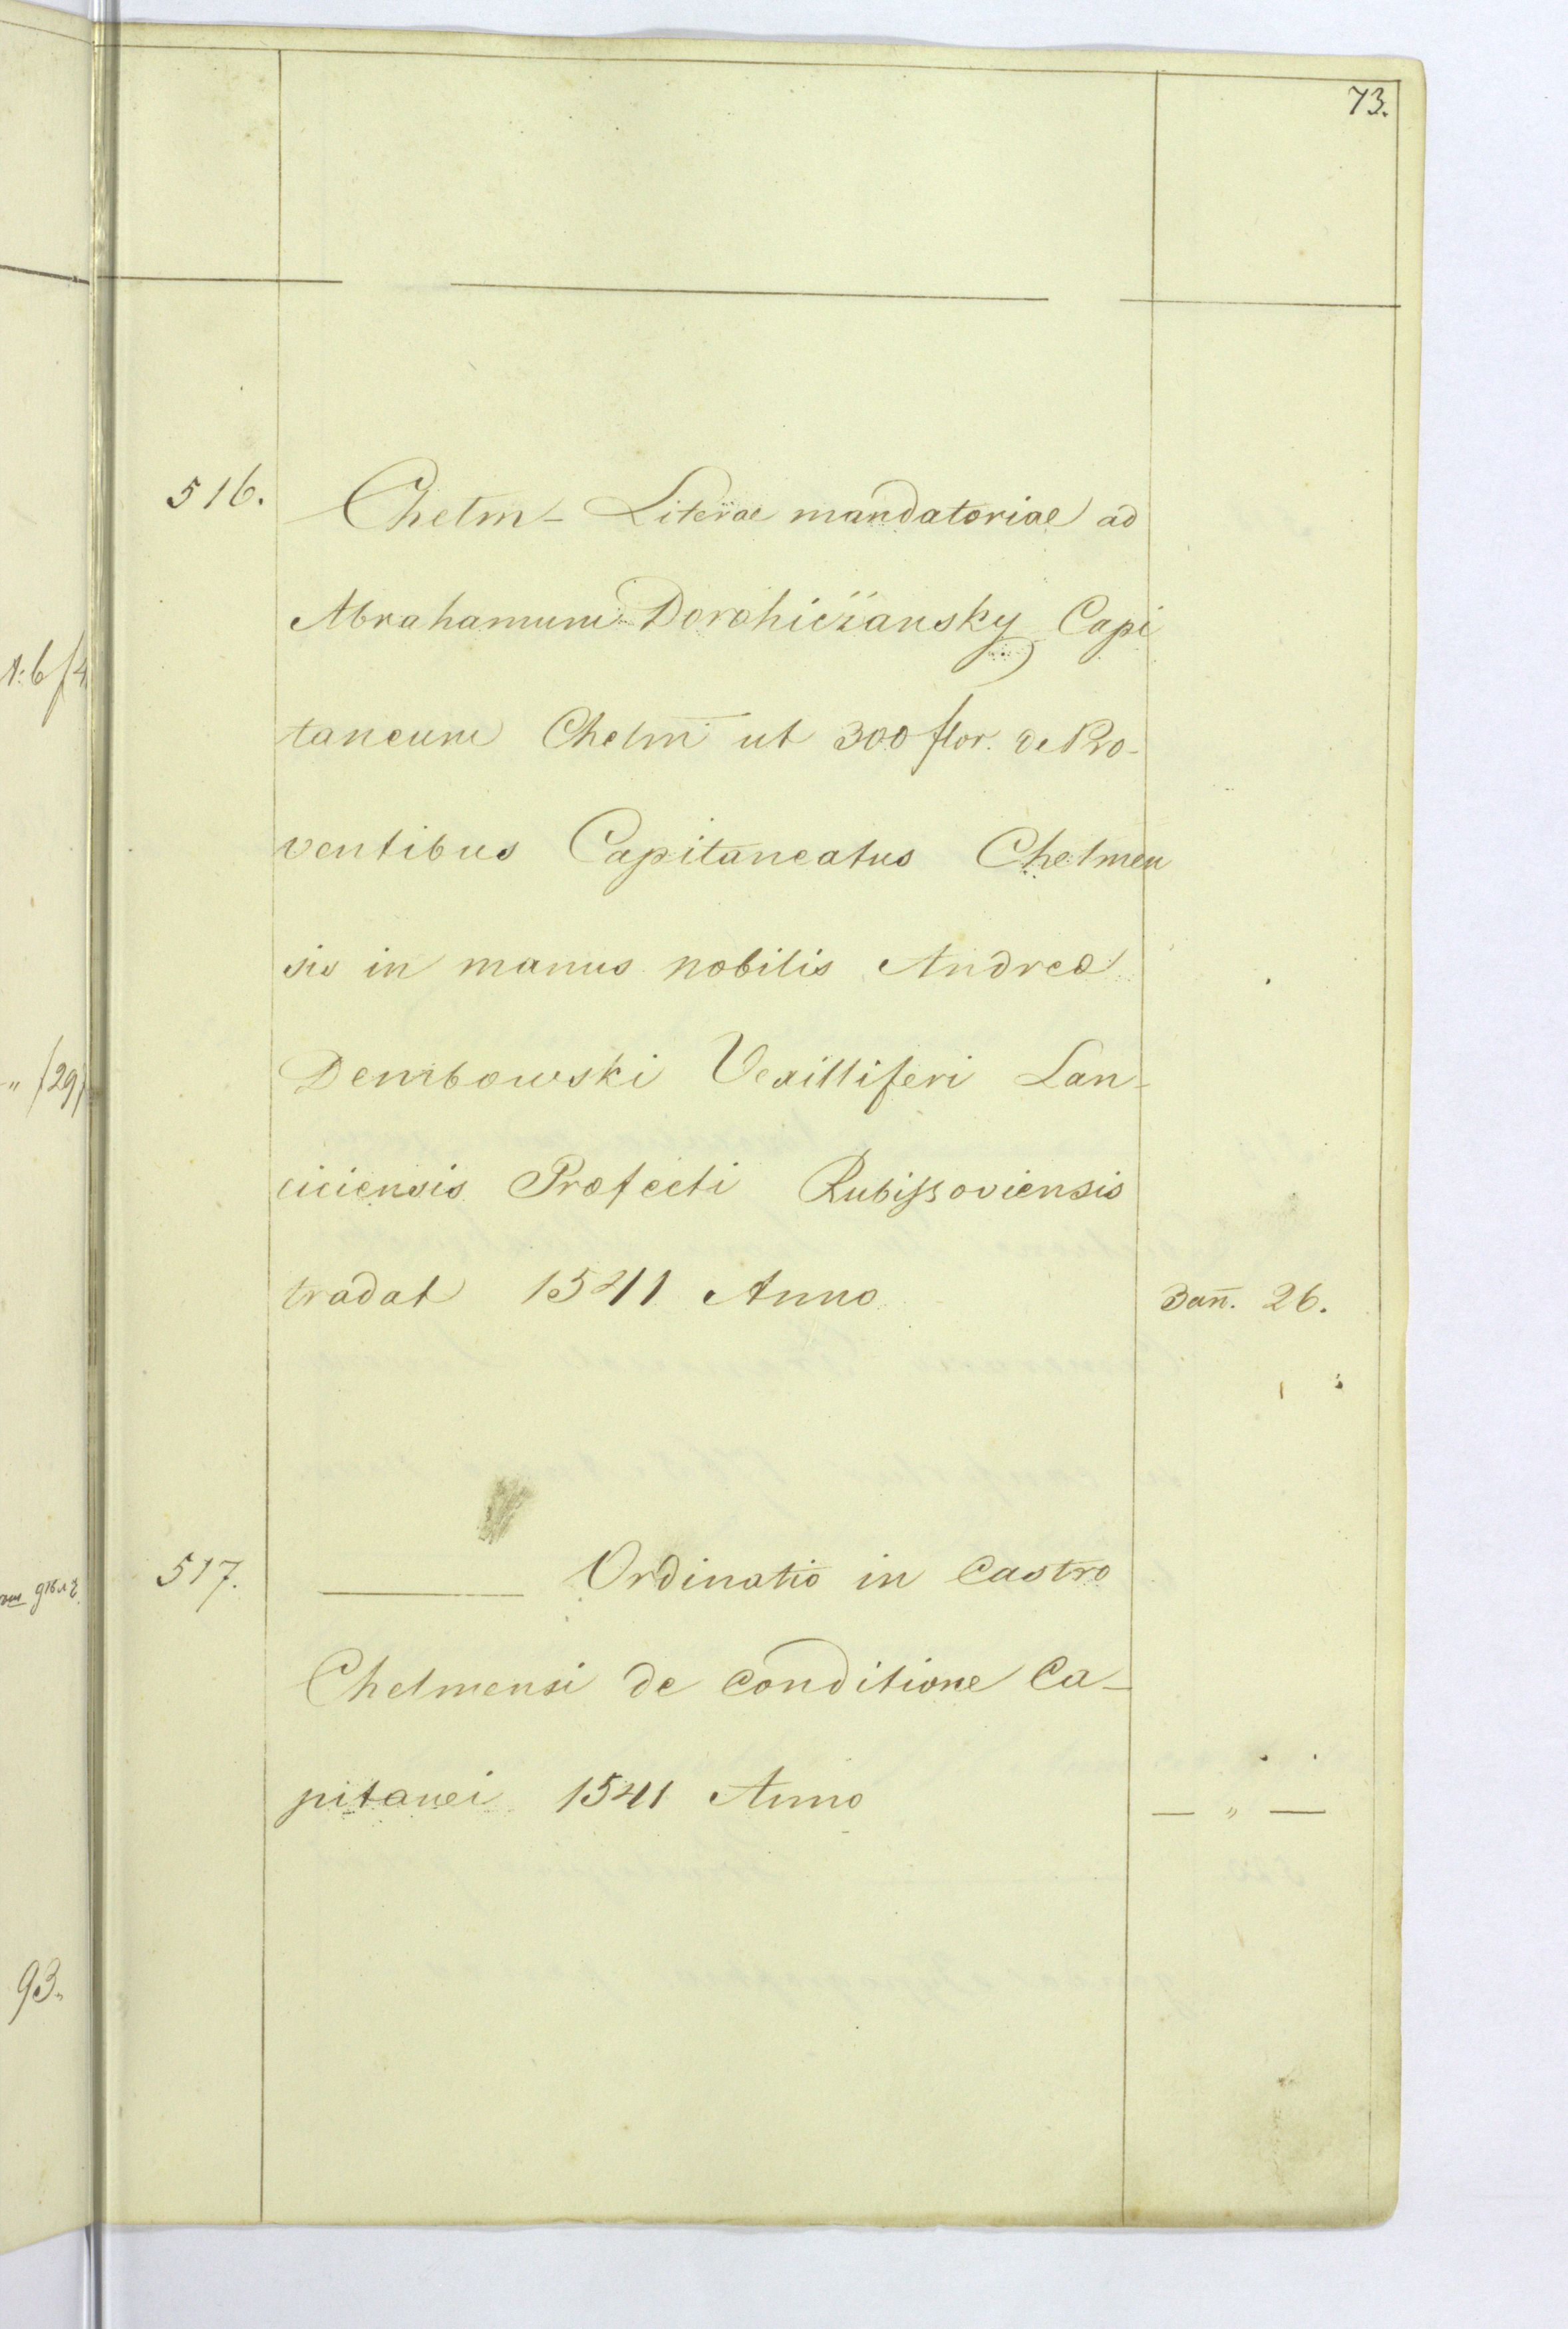 73.
516. Chelm - Literae mandatoriae ad
Abrahamum Dorohiczansky Capi
taneum Chelm̄ ut 300 flor. de Pro-
ventibus Capitaneatus Chelmen
sis in manus nobilis Andreæ
Dembowski Vexilliferi Lan-
ciciensis Præfecti Rubissoviensis
tradat 1541 Anno Зап. 26.
517. ——— Ordinatio in Castro
Chelmensi de Conditione Ca-
pitanei 1541 Anno — „ —
93.